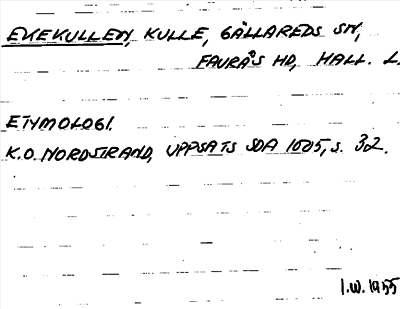 EKEKULLEN, KULLE, GÄLLAREDS SN,
FAURÅS HD, HALL. L.
ETYMOLOGI.
K.O. NORDSTRAND, UPPSATS SDA 1005, s. 32.
I.W. 1955